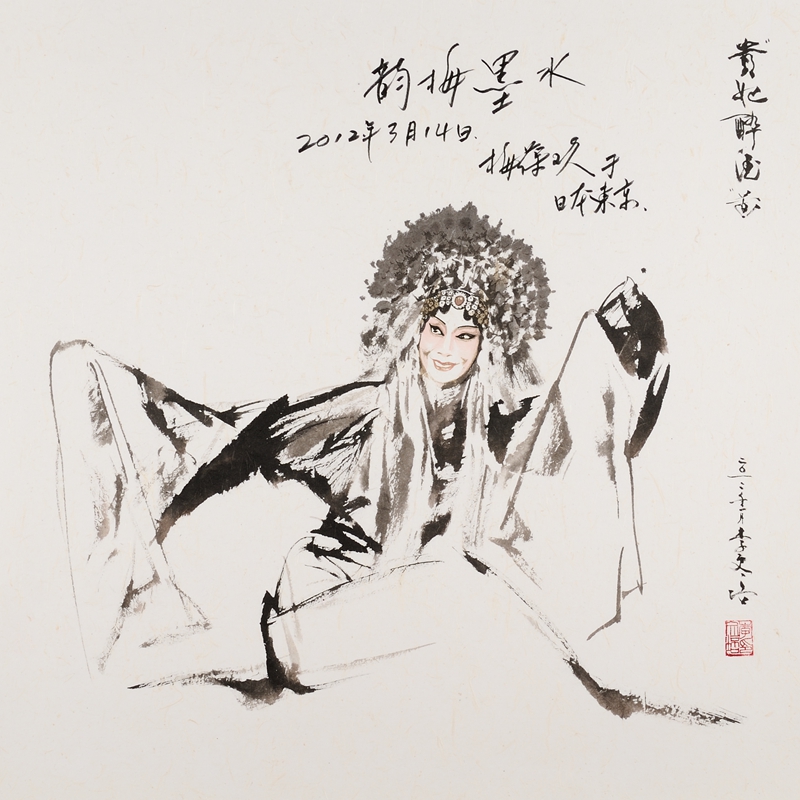 水墨梅韵
2012年3月14日
梅葆玖于
日本东京.
貴妃醉酒
二〇一二年一月李文培